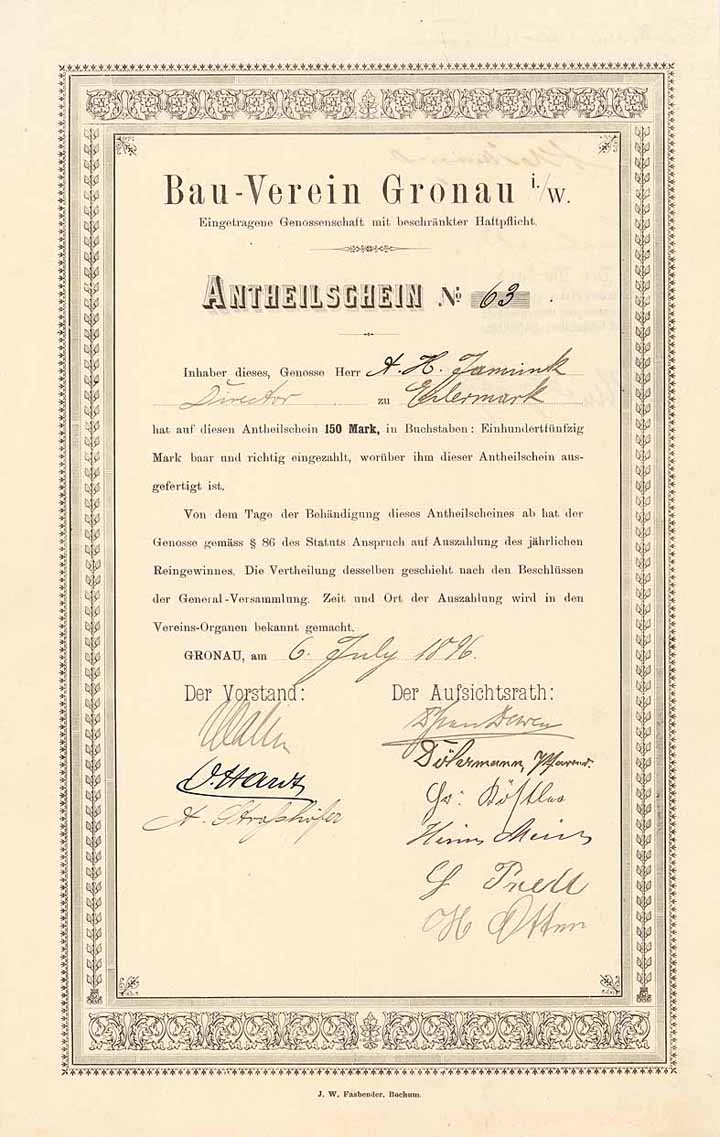 Bau-Verein Gronau i./W.
Eingetragene Genossenschaft mit beschränkter Haftpflicht.
ANTHEILSCHEIN No 63
Inhaber dieses, Genosse Herr A. H. Jannink
Director zu Eilermark
hat auf diesen Antheilschein 150 Mark, in Buchstaben: Einhundertfünfzig
Mark baar und richtig eingezahlt, worüber ihm dieser Antheilschein aus-
gefertigt ist.
Von dem Tage der Behändigung dieses Antheilscheines ab hat der
Genosse gemäss § 86 des Statuts Anspruch auf Auszahlung des jährlichen
Reingewinnes. Die Vertheilung desselben geschieht nach den Beschlüssen
der General-Versammlung. Zeit und Ort der Auszahlung wird in den
Vereins-Organen bekannt gemacht.
GRONAU, am 6. July 1896.
Der Vorstand: Der Aufsichtsrath:
H. Otten
J. W. Fasbender, Bochum.